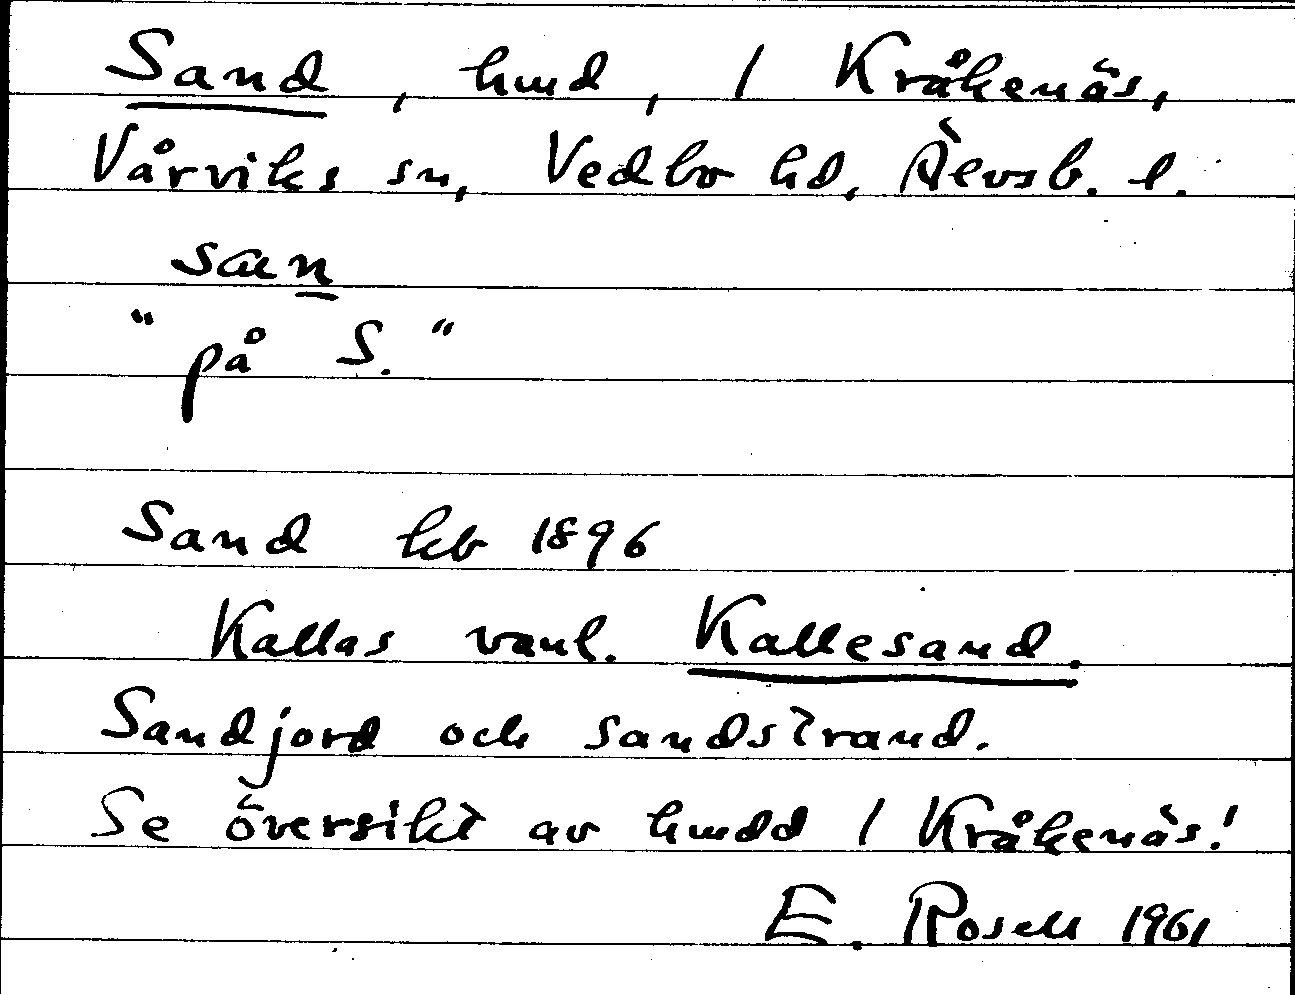 Sand, hmd, / Kråkenäs,
Vårviks sn, Vedbo hd, Älvsb. l.
san
"på S."
Sand kb 1896
Kallas vanl. Kallesand.
Sandjord och sandstrand.
Se översikt av hmdd / Kråkenäs!
E. Rosell 1961